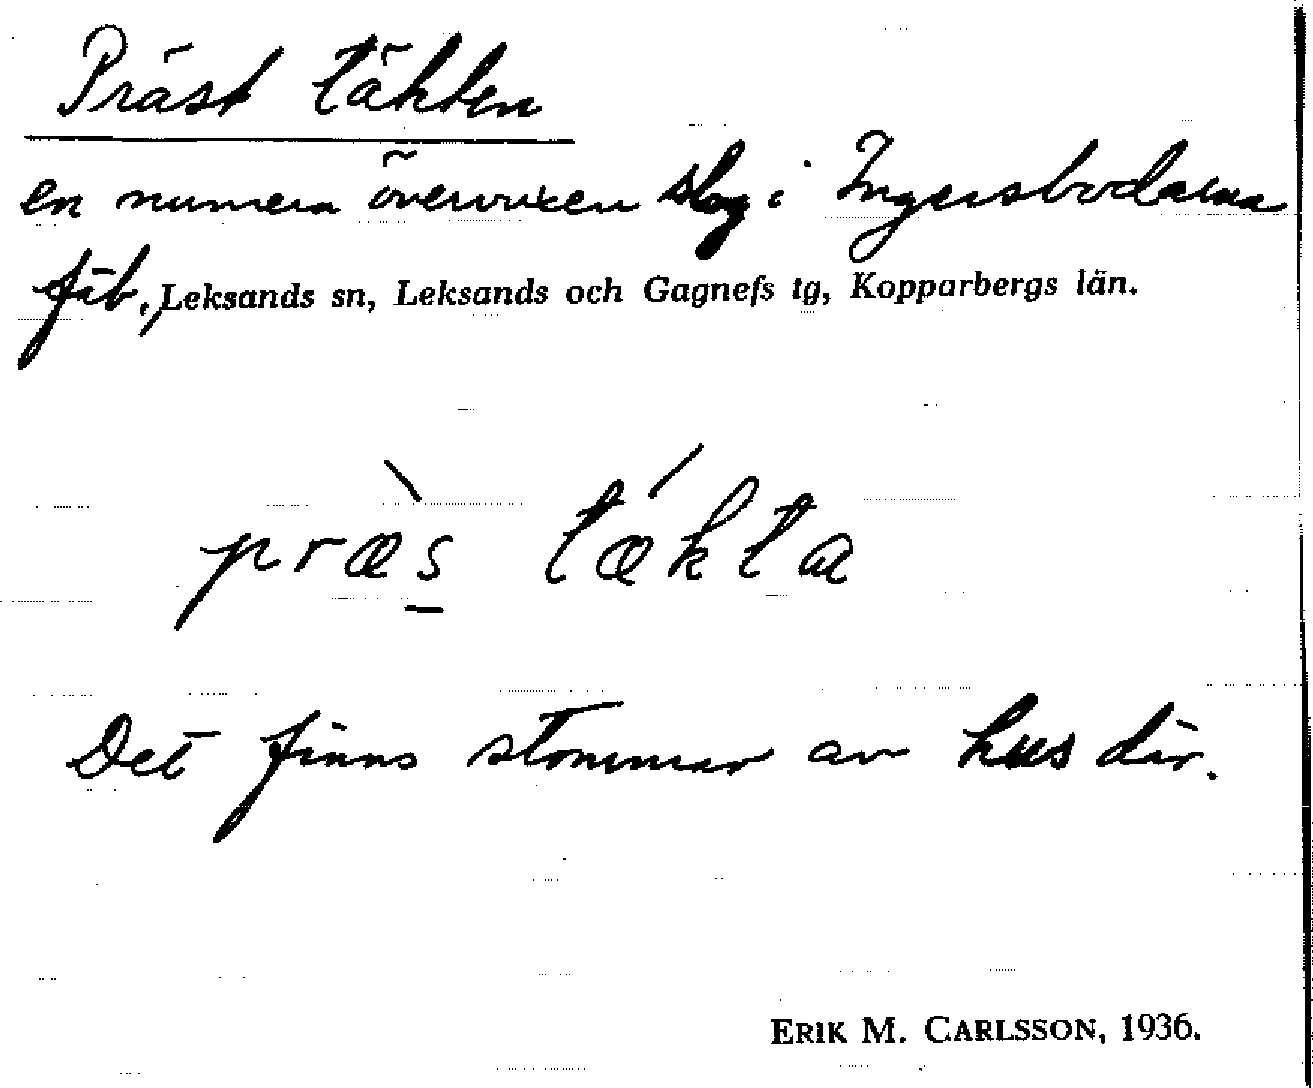 Präst täkten
en numera övervuxen slog i Ingersbodarna
fäb., Leksands sn, Leksands och Gagnefs tg, Kopparbergs län.
præ̀s̠ tǽkta
Det finns stommar av hus där.
ERIK M. CARLSSON, 1936.